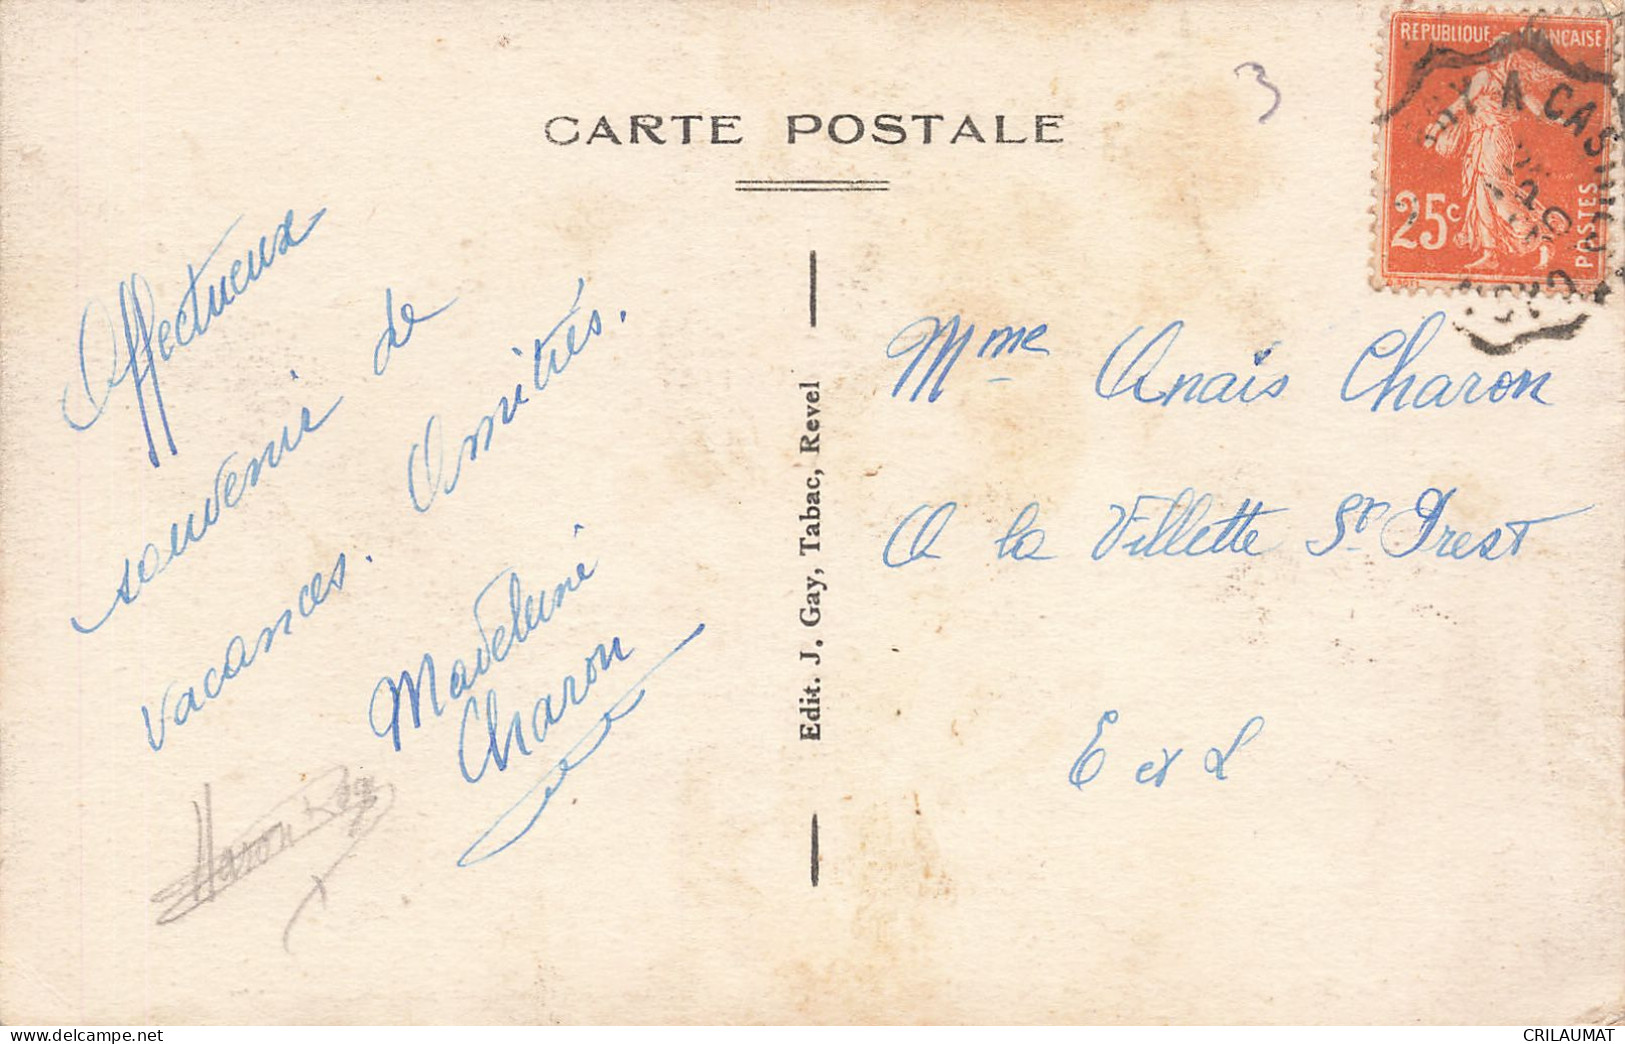 CARTE POSTALE
3
REPUBLIQUE FRANÇAISE
25c
POSTES
A CAS
Affectueux
souvenir de
vacances. Amitiés.
Madeleine
Charon
Edit. J. Gay, Tabac, Revel
Mme Anaïs Charon
A la Villette St Prest
E et L
CRILAUMAT